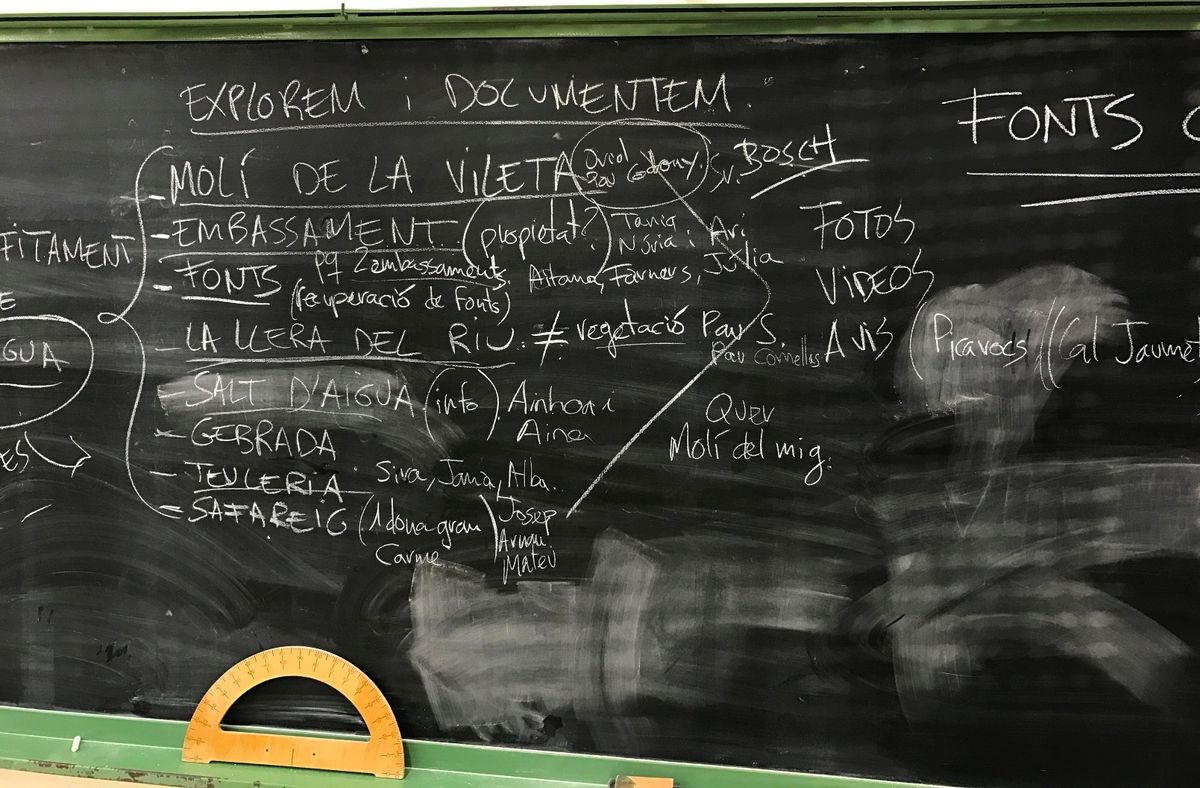 EXPLOREM i DOCUMENTEM.
- MOLÍ DE LA VILETA Sr. BOSCH
- EMBASSAMENT (propietat?) Tània Núria i Ari Júlia
pq 2 embassaments.
- FONTS (recuperació de fonts) Aitana, Farners,
- LA LLERA DEL RIU. ≠ vegetació Pau S.
Pau Cornellas
- SALT D'AIGUA (info) Ainhoa i
Aina
- GEBRADA
- TEULERIA Sira, Jana, Alba.
- SAFAREIG (1 dona gran) Josep
Carme
Mateu
Quer
Molí del mig.
FONTS
FOTOS
VIDEOS
AVIS (Picarocs // (Cal Jaumet
FITAMENT
E
GUA
ES